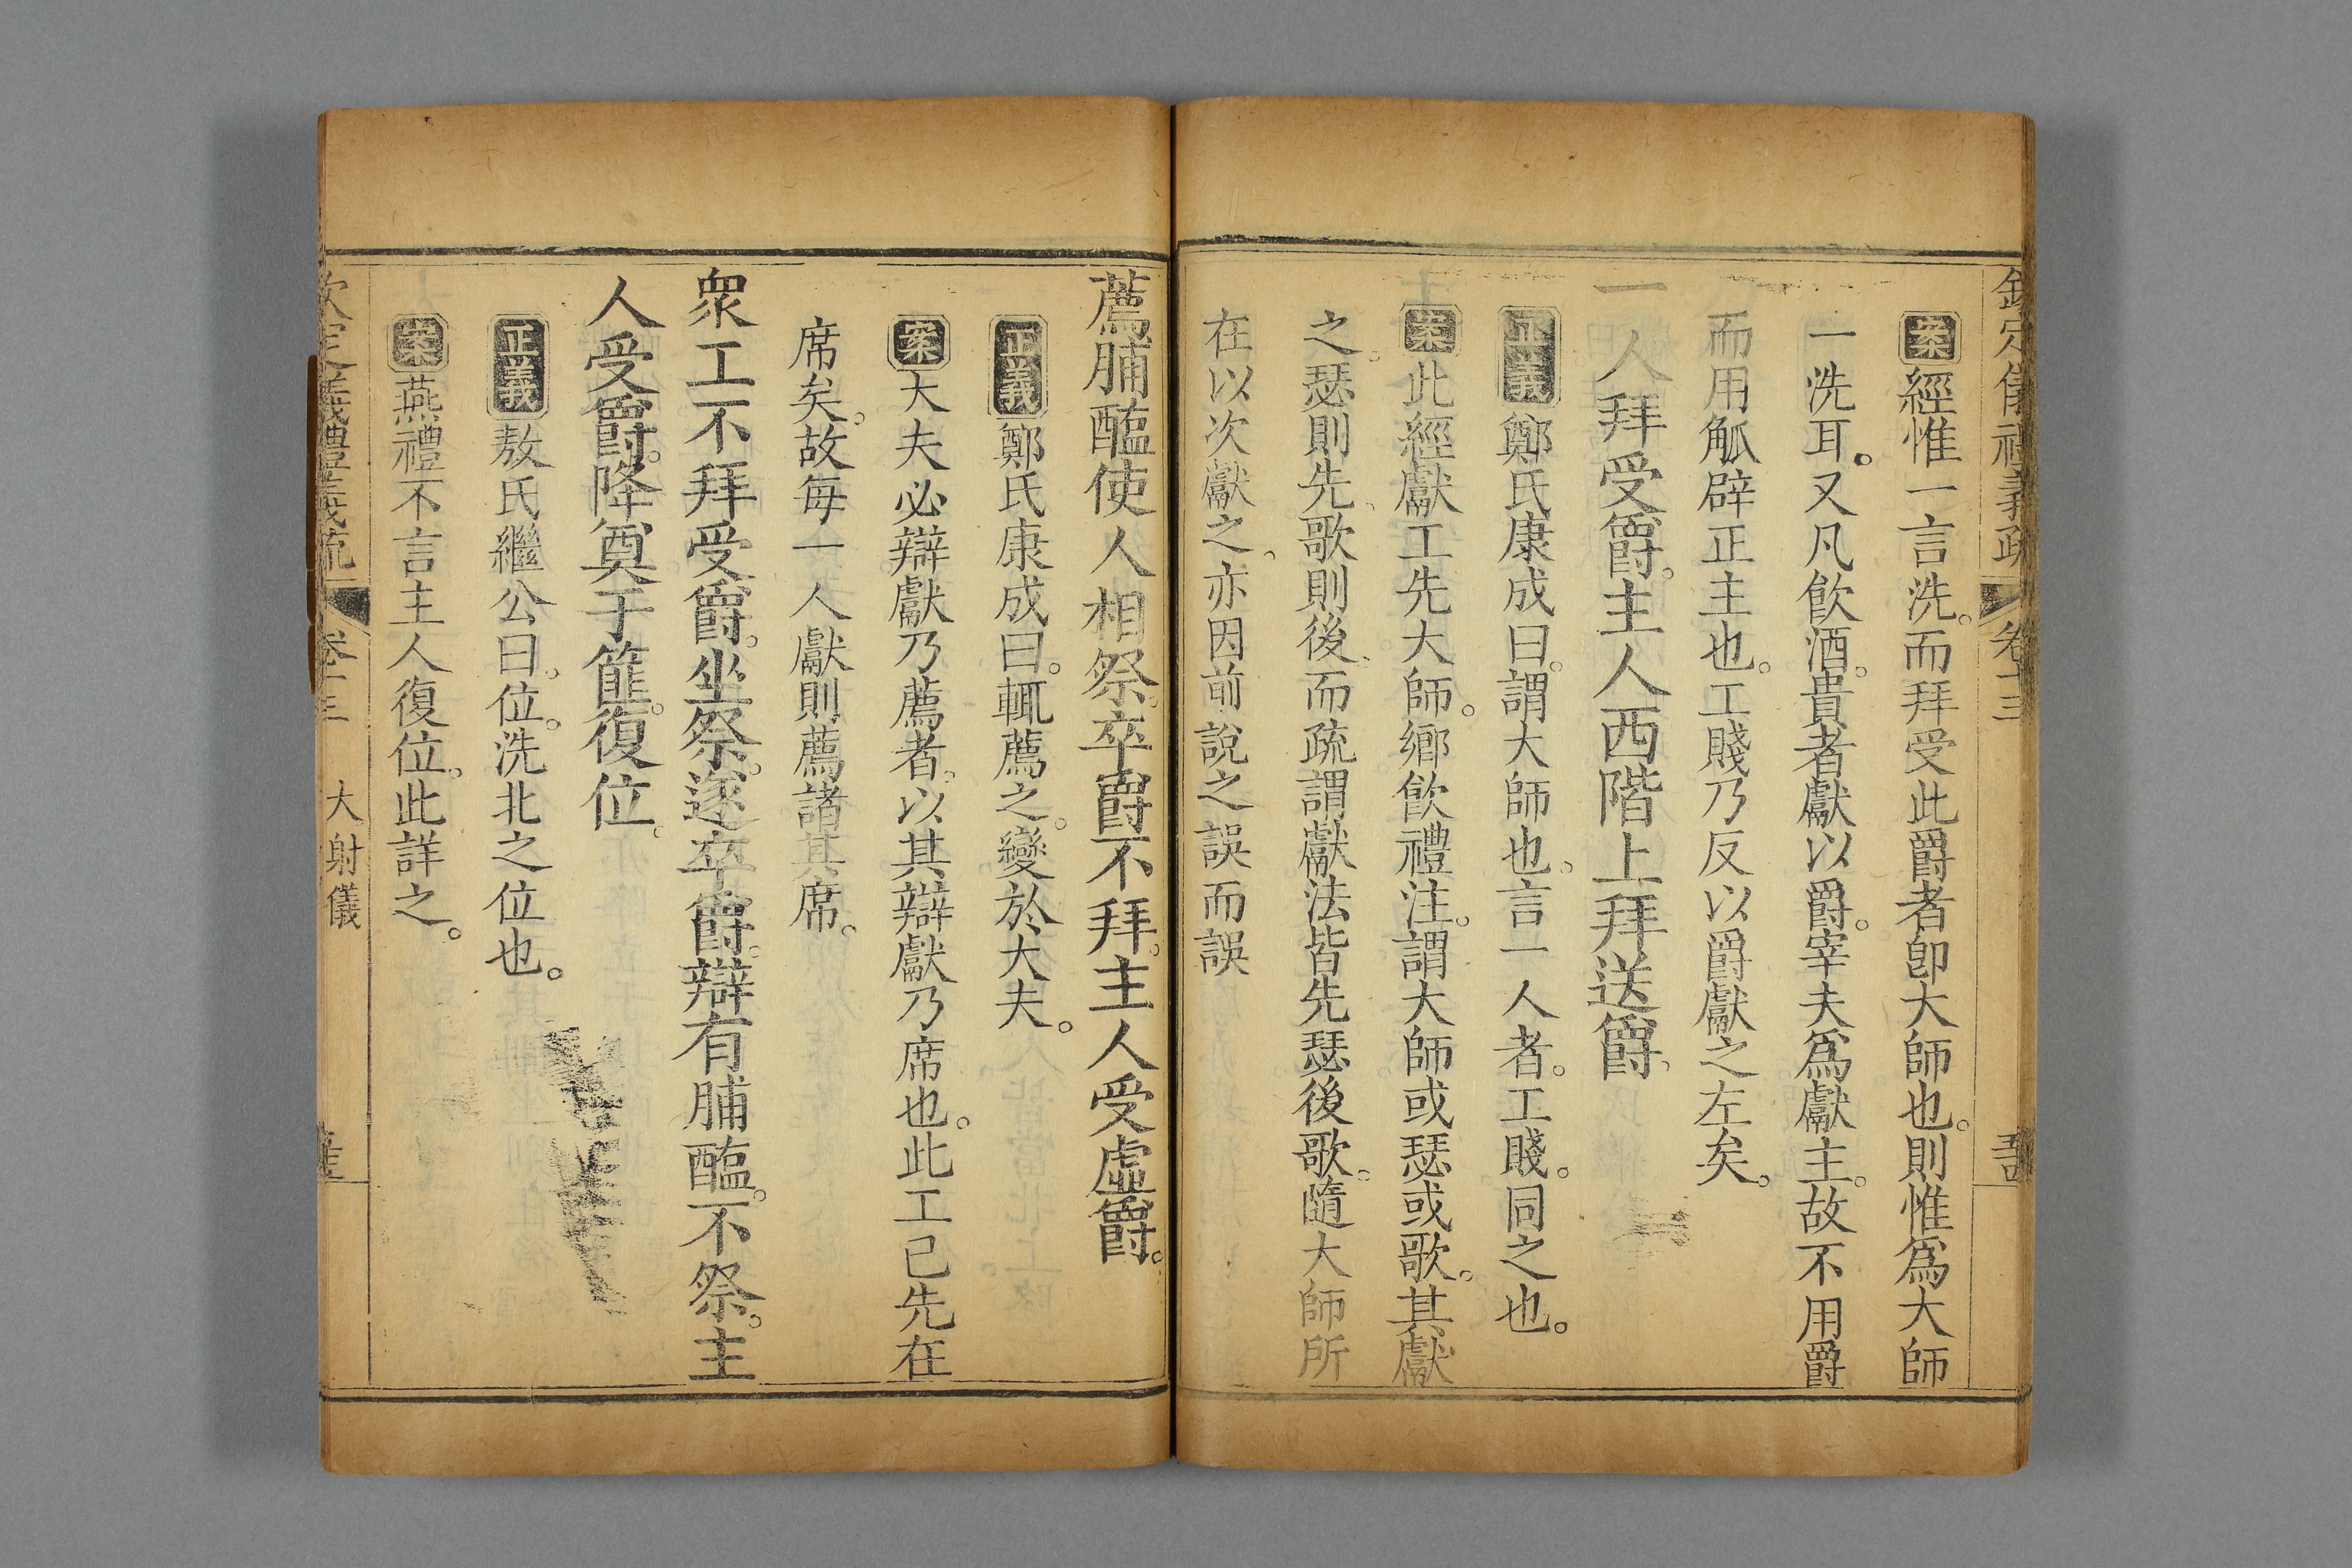 欽定儀禮義疏 卷十三
案經惟一言洗。而拜受此爵者卽大師也。則惟爲大師
一洗耳。又凡飮酒。貴者獻以爵。宰夫爲獻主。故不用爵
而用觚辟正主也。工賤乃反以爵獻之左矣。
一人拜受爵。主人西階上拜送爵。
正義鄭氏康成曰。謂大師也。言一人者。工賤。同之也。
案此經獻工先大師。鄉飮禮注。謂大師或瑟或歌。其獻
之。瑟則先。歌則後。而疏謂獻法皆先瑟後歌。隨大師所
在以次獻之。亦因前說之誤而誤
薦脯醢使人相祭。卒爵不拜。主人受虛爵。
正義鄭氏康成曰。輒薦之。變於大夫。
案大夫必辯獻乃薦者。以其辯獻乃席也。此工已先在
席矣。故每一人獻則薦諸其席。
衆工不拜受爵。坐祭。遂卒爵。辯有脯醢。不祭。主
人受爵。降奠于篚。復位。
正義敖氏繼公曰。位。洗北之位也。
案燕禮不言主人復位。此詳之。
欽定儀禮義疏 卷十三 大射儀